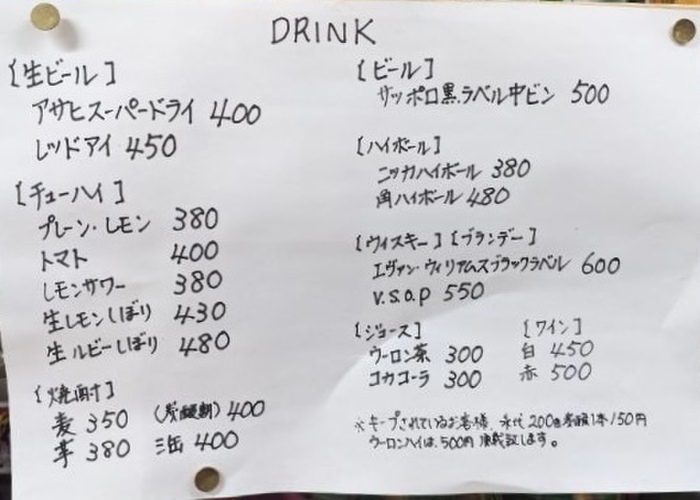 DRINK
[生ビール]
アサヒスーパードライ 400
レッドアイ 450
[チューハイ]
プレーン・レモン 380
トマト 400
レモンサワー 380
生レモンしぼり 430
生ルビーしぼり 480
[焼酎]
麦 350 (炭酸割) 400
芋 380 缶 400
[ビール]
サッポロ黒.ラベル中ビン 500
[ハイボール]
ニッカハイボール 380
角ハイボール 480
[ウィスキー] [ブランデー]
エヴァン・ウィリアムスブラックラベル 600
V.S.O.P 550
[ジュース]
ウーロン茶 300
コカコーラ 300
[ワイン]
白 450
赤 500
※キープされているお客様、氷代 200 炭酸1本150円
ウーロンハイは、500円 頂戴致します。